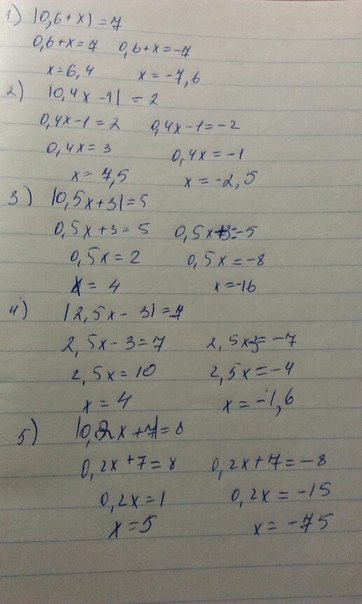 1) |0,6+x|=7
0,6+x=7 0,6+x=-7
x=6,4 x=-7,6
2) |0,4x-1|=2
0,4x-1=2 0,4x-1=-2
0,4x=3 0,4x=-1
x=7,5 x=-2,5
3) |0,5x+3|=5
0,5x+3=5 0,5x+3=-5
0,5x=2 0,5x=-8
x=4 x=-16
4) |2,5x-3|=7
2,5x-3=7 2,5x-3=-7
2,5x=10 2,5x=-4
x=4 x=-1,6
5) |0,2x+7|=8
0,2x+7=8 0,2x+7=-8
0,2x=1 0,2x=-15
x=5 x=-75